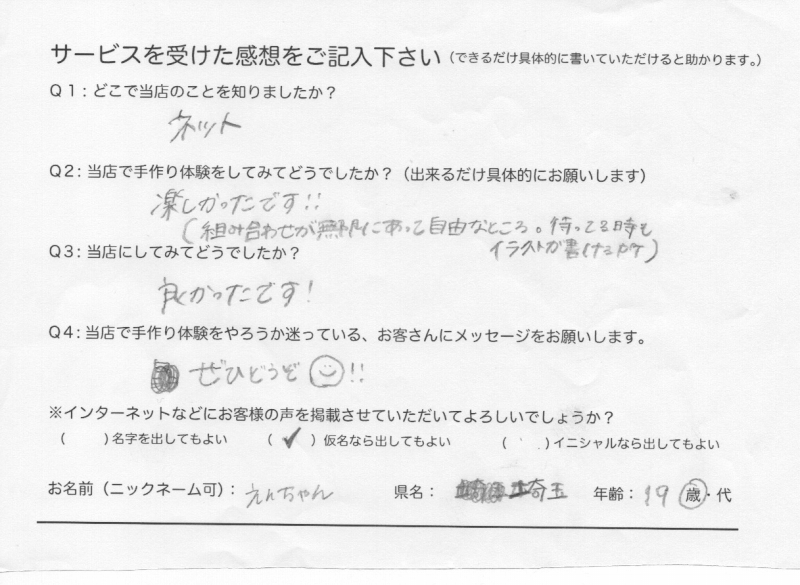 サービスを受けた感想をご記入下さい（できるだけ具体的に書いていただけると助かります。）
Q1：どこで当店のことを知りましたか？
ネット
Q2：当店で手作り体験をしてみてどうでしたか？（出来るだけ具体的にお願いします）
楽しかったです!!
(組み合わせが無限にあって自由なところ。待ってる時も
イラストが書けるがケ)
Q3：当店にしてみてどうでしたか？
良かったです！
Q4：当店で手作り体験をやろうか迷っている、お客さんにメッセージをお願いします。
ぜひどうぞ☺!!
※インターネットなどにお客様の声を掲載させていただいてよろしいでしょうか？
（　　）名字を出してもよい　（ ✓ ）仮名なら出してもよい　（　　）イニシャルなら出してもよい
お名前（ニックネーム可）：えんちゃん　県名：埼玉　年齢：19歳・代